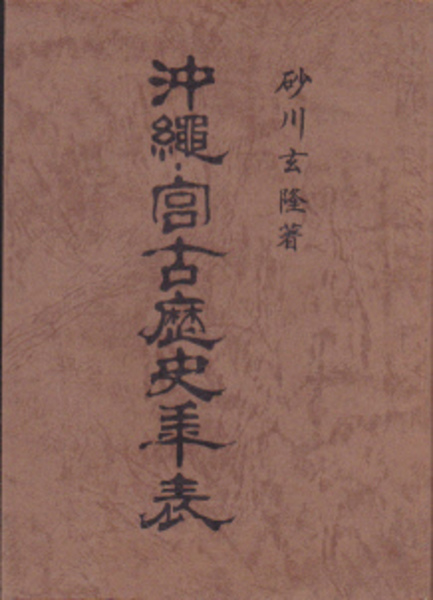 砂川玄隆著
沖繩・宮古歴史年表